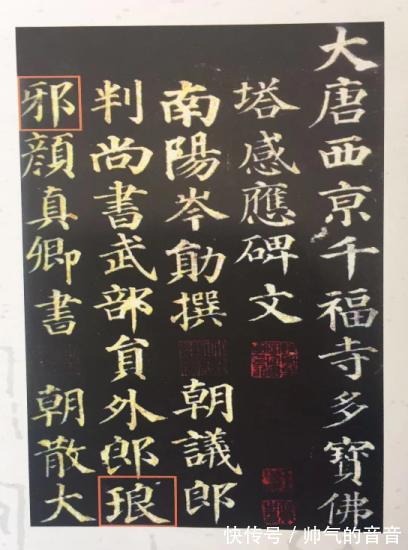 大唐西京千福寺多寶佛
塔感應碑文
南陽岑勛撰 朝議郎
判尚書武部員外郎琅
邪顏真卿書 朝散大
快传号/帅气的音音